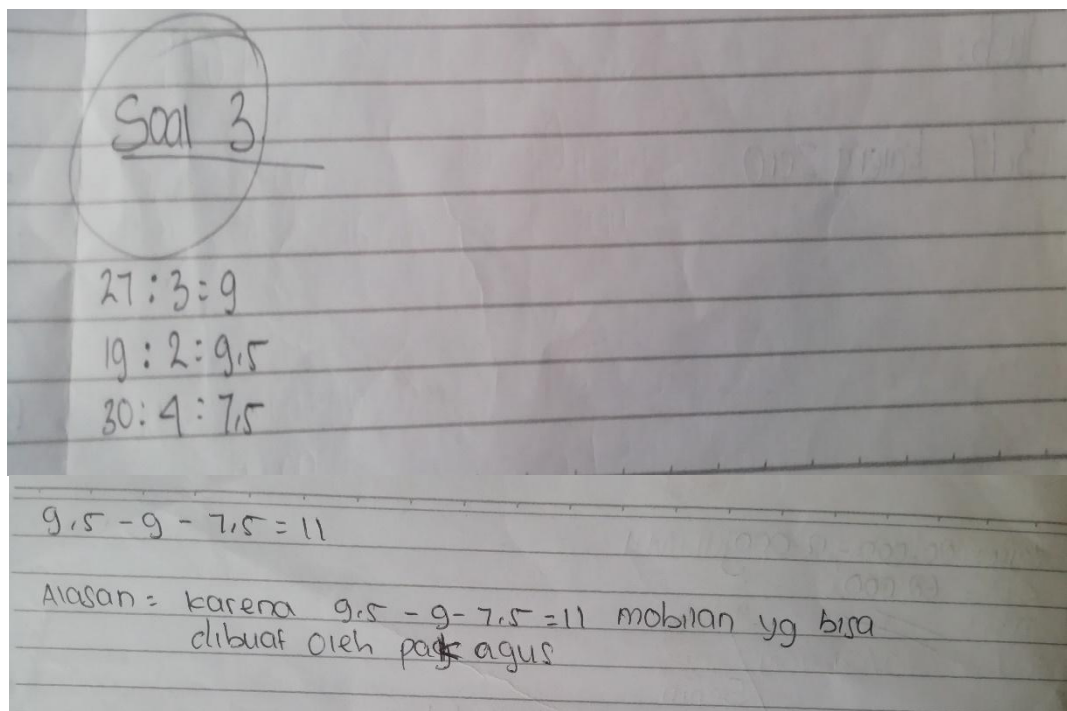 Soal 3
27 : 3 = 9
19 : 2 = 9,5
30 : 4 = 7,5
9,5 - 9 - 7,5 = 11
Alasan = karena 9,5 - 9 - 7,5 = 11 mobilan yg bisa
dibuat oleh pak agus